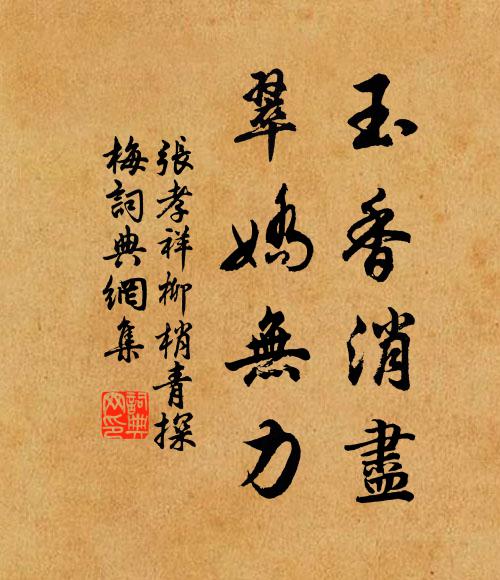 玉香消盡
翠嬌無力
張孝祥柳梢青探
梅詞典網集
詞典網印